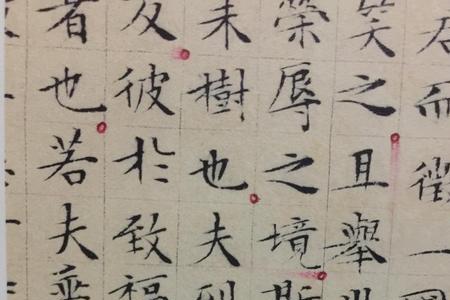 君而徵一國
笑之且舉世
榮辱之境斯
未樹也夫列
反彼於致福
者也若夫乘